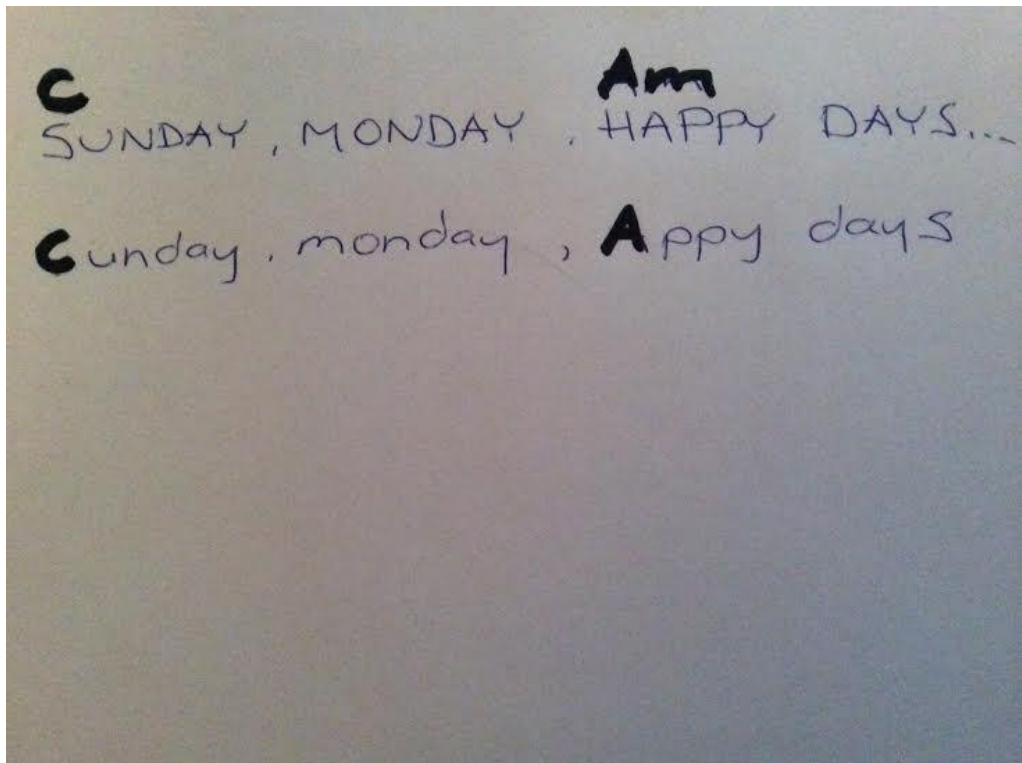 C Am
SUNDAY, MONDAY, HAPPY DAYS...
Cunday, monday, Appy days